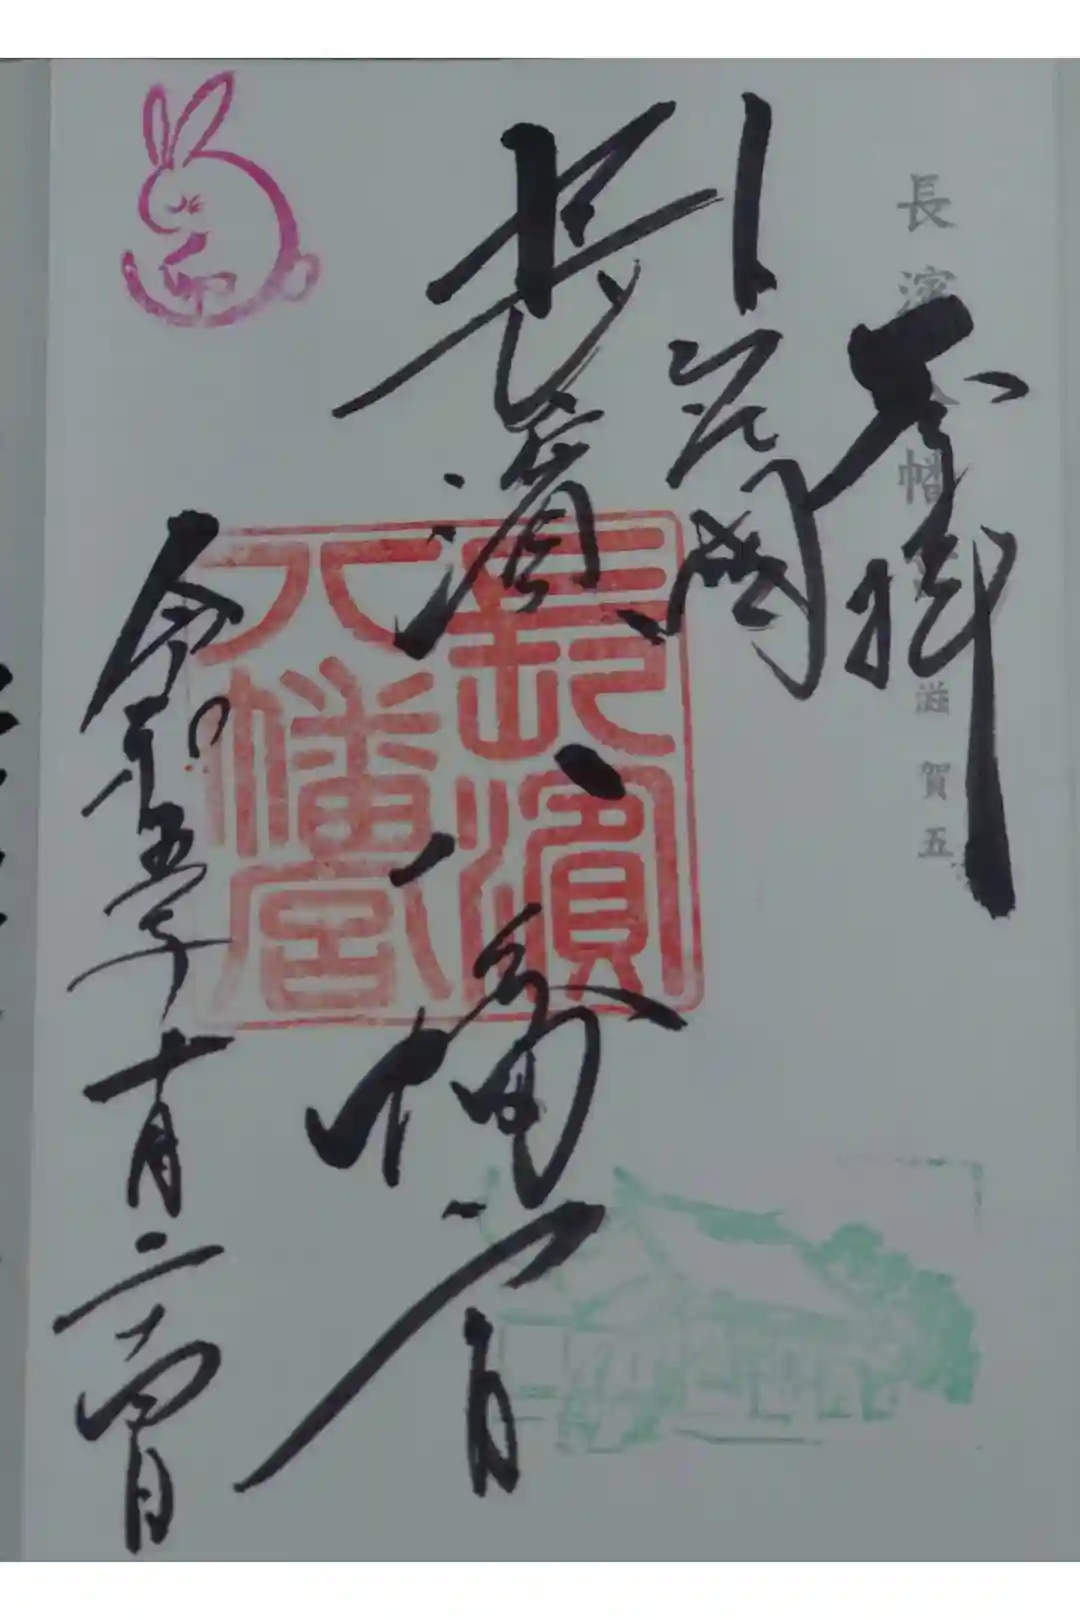 長濱八幡宮 滋賀五
奉拝
國
長濱八幡宮
長濱
八幡宮
令和五年十月二十四日